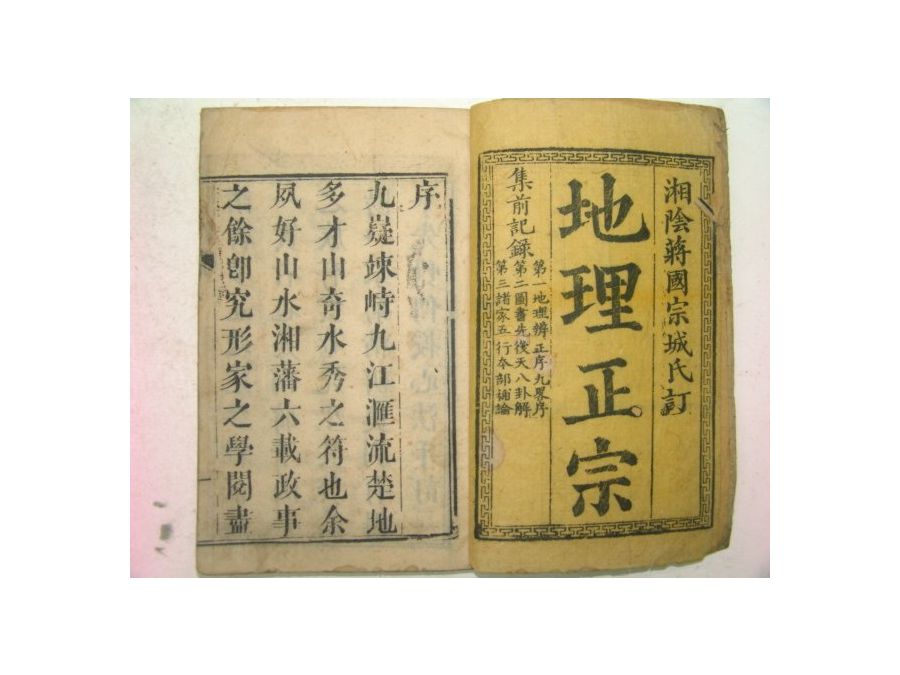 湘陰蔣國宗城氏訂
地理正宗
集前記録
第一地理辨正序九畧序
第二圖書先後天八卦解
第三諸家五行本部補論
序
九嶷竦峙九江滙流楚地
多才山奇水秀之符也余
夙好山水湘藩六載政事
之餘卽究形家之學閱盡